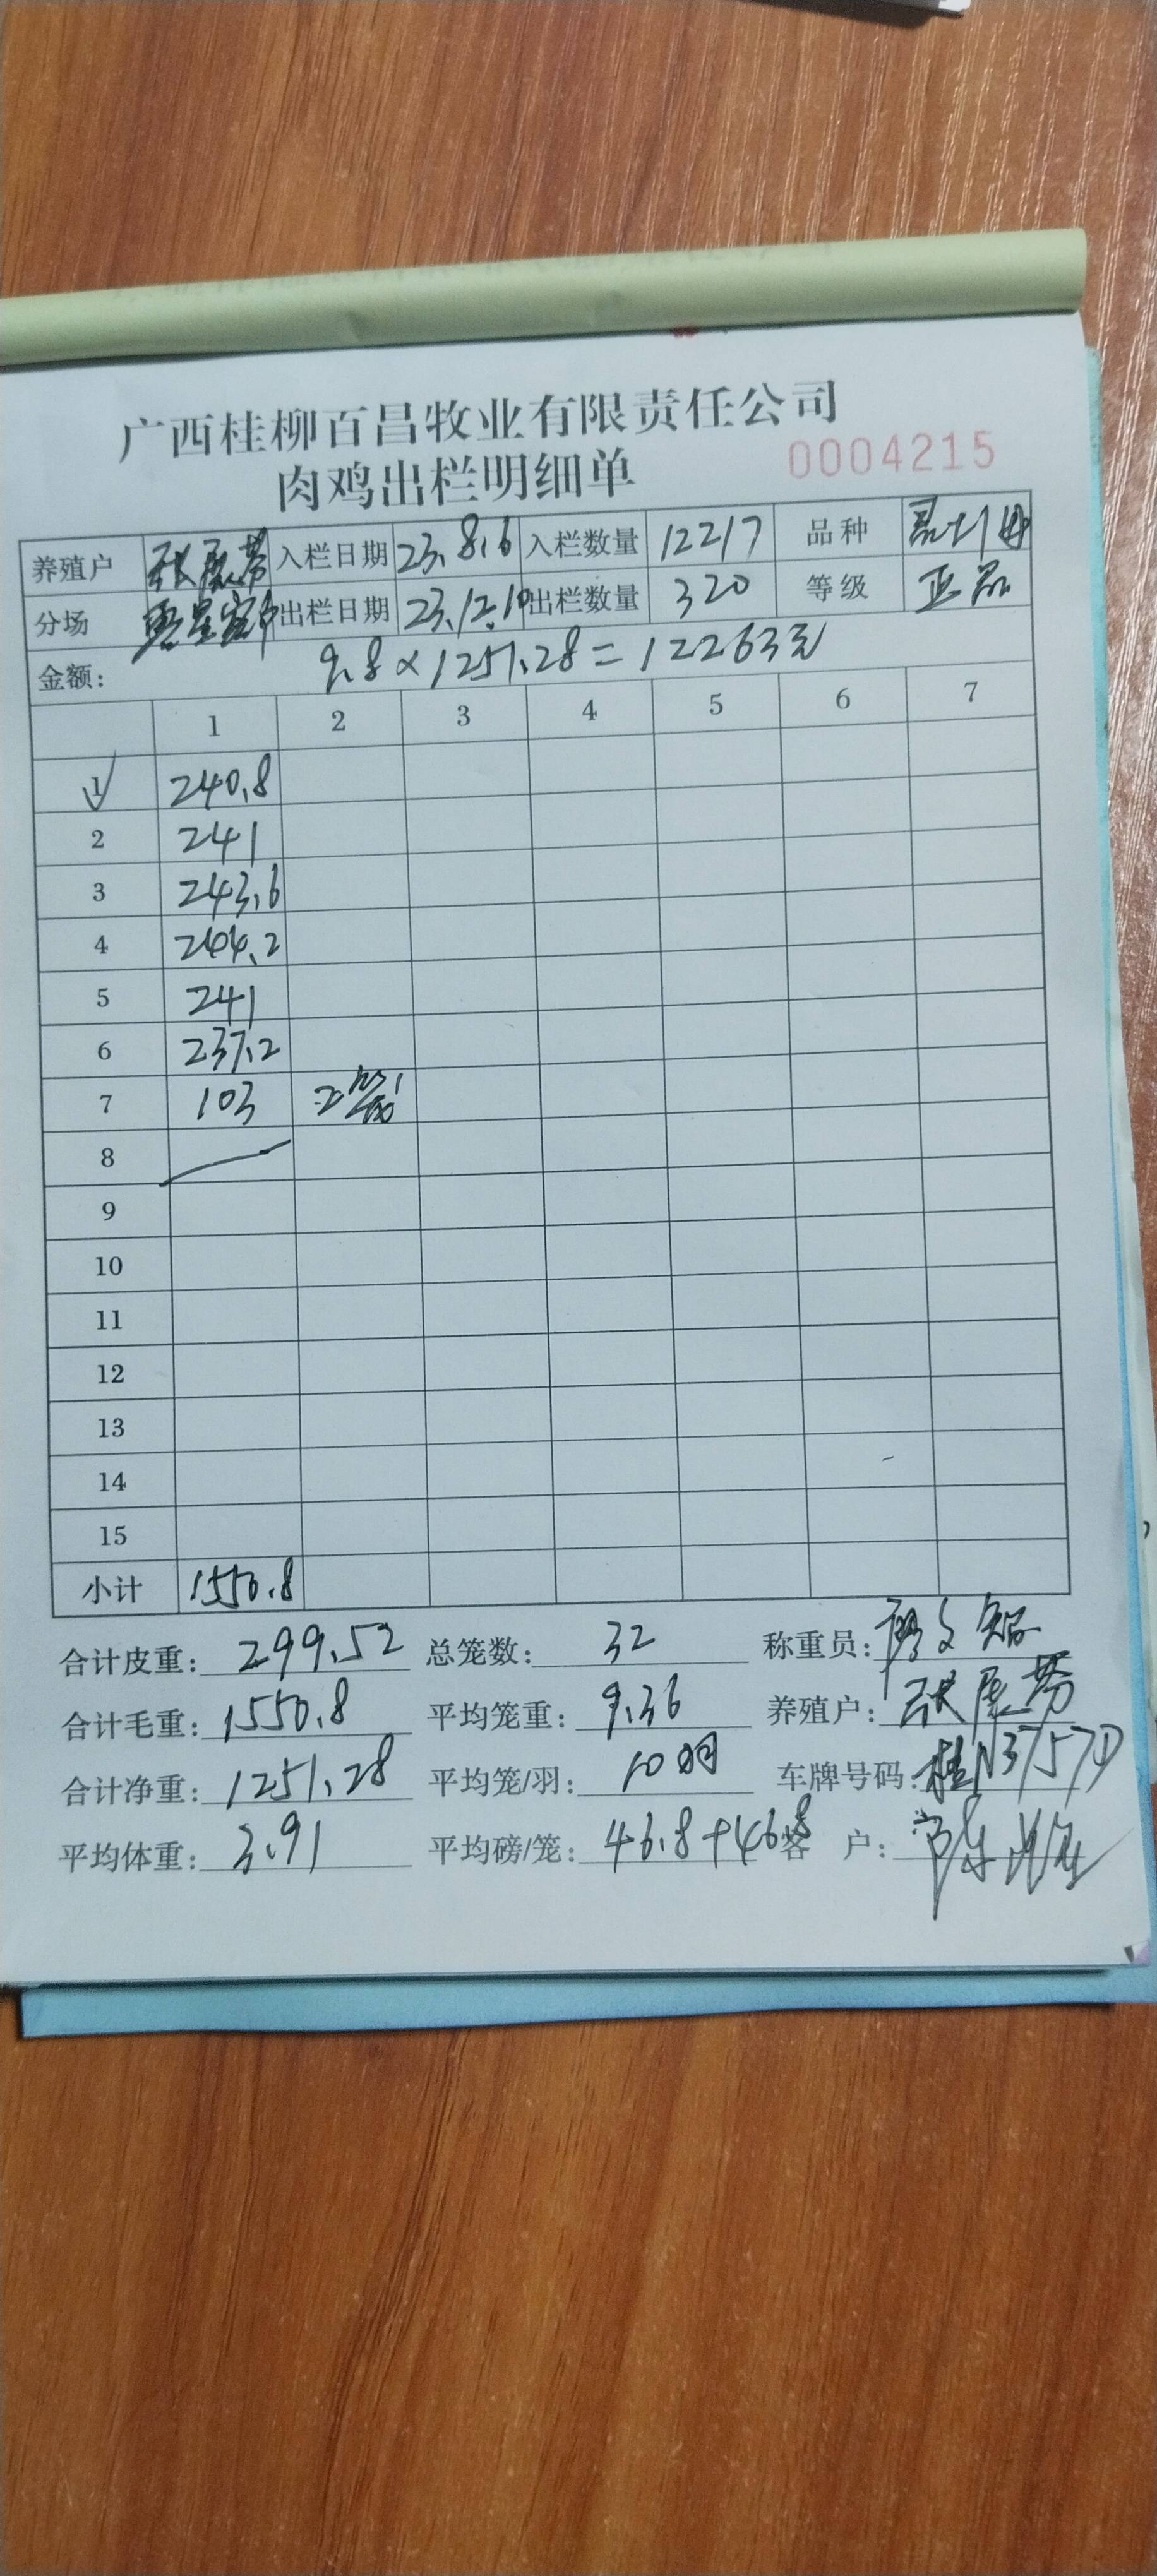 广西桂柳百昌牧业有限责任公司
肉鸡出栏明细单 0004215
养殖户 入栏日期 23.8.6 入栏数量 12217 品种
分场 出栏日期 23.12.10 出栏数量 320 等级 正品
金额: 9.8×1251.28=12263元
1 2 3 4 5 6 7
1 240.8
2 241
3 243.6
4 244.2
5 241
6 237.2
7 103 2笼
8
9
10
11
12
13
14
15
小计 1550.8
合计皮重: 299.52 总笼数: 32 称重员:
合计毛重: 1550.8 平均笼重: 9.36 养殖户: 张
合计净重: 1251.28 平均笼/羽: 10羽 车牌号码: 桂N3757D
平均体重: 3.91 平均磅/笼: 46.8+46.8 客 户: 陈